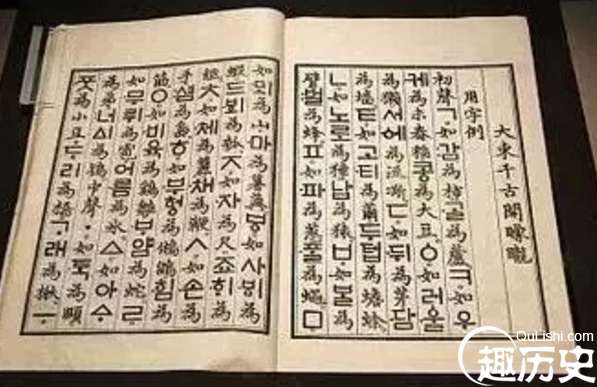 大東千古開矇矓
用字例
初聲ㄱ如감為柿ᄀᆞᆯ為蘆ㅋ如우
케為未舂稻콩為大豆ㆁ如러울
為獺서에為流凘ㄷ如뒤為茅담
為墻ㅌ如고티為繭두텁為蟾蜍
ㄴ如노로為獐납為猿ㅂ如ᄇᆞᆯ為
臂벌為蜂ㅍ如파為葱ᄑᆞᆯ為蠅ㅁ
如뫼為山마為薯藇ㅸ如사ᄫᅵ為
蝦드ᄫᅴ為瓠ㅈ如자為尺죠ᄒᆡ為
紙ㅊ如체為籭채為鞭ㅅ如손為
手셤為島ㅎ如부헝為鵂鶹힘為
筋ㅇ如비육為鷄雛ᄇᆞ얌為蛇ㄹ
如무뤼為雹어름為氷ㅿ如아ᅀᆞ
為弟너ᅀᅵ為鴇中聲ㆍ如ᄐᆞᆨ為頤
ᄑᆞᆺ為小豆ᄃᆞ리為橋ᄀᆞ래為楸ㅡ
QuLishi.com
趣历史